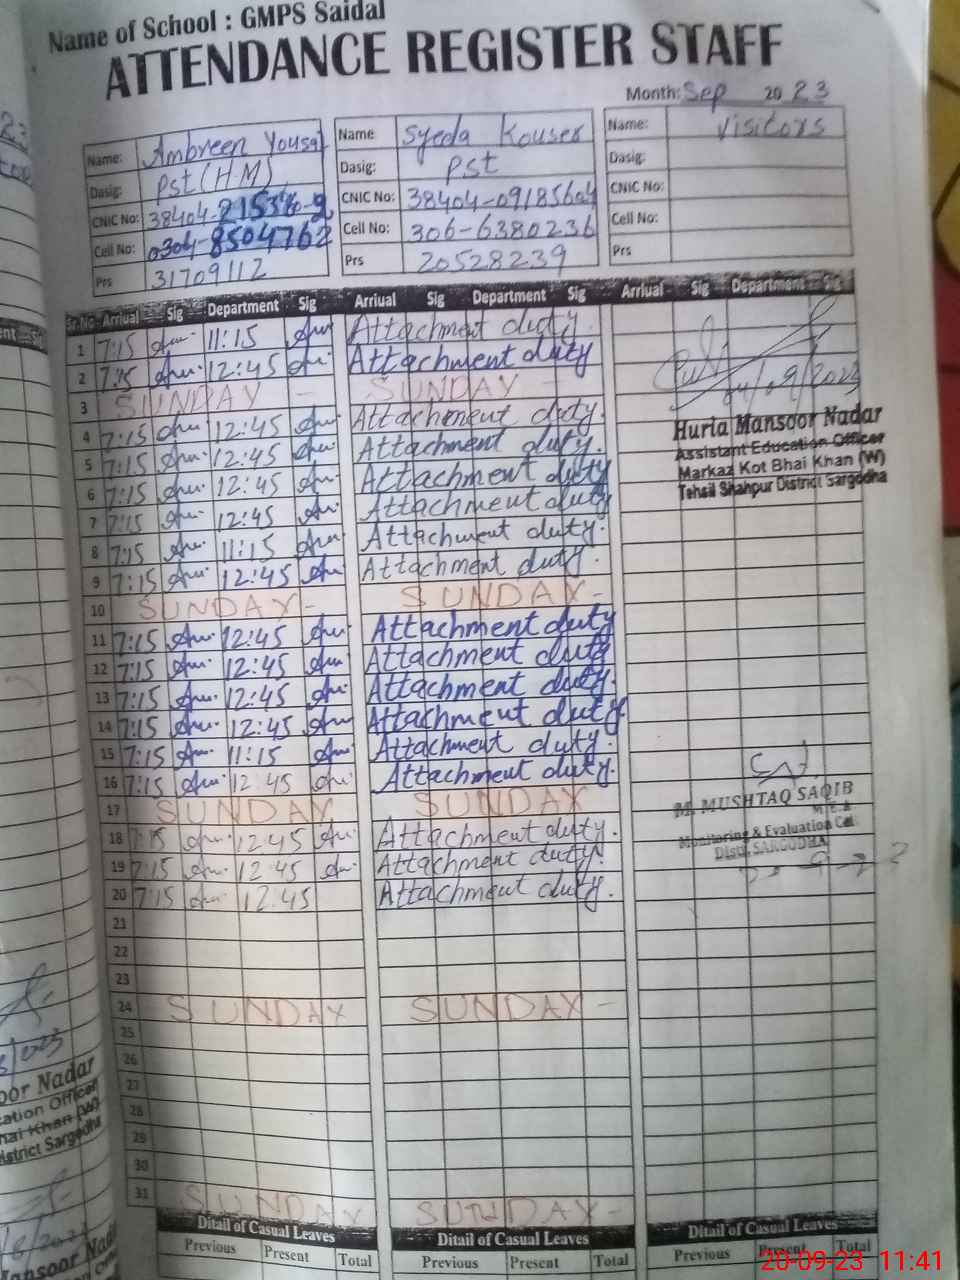 Name of School : GMPS Saidal
ATTENDANCE REGISTER STAFF
Month: Sep 2023
Name: Ambreen Yousaf
Dasig: Pst (H.M)
CNIC No: 38404-
Cell No: 0304-8504762
Prs 31709112
Name Syeda Kouser
Dasig: Pst
CNIC No: 38404-09185604
Cell No: 306-6380236
Prs 20528239
Name: Visitors
Dasig:
CNIC No:
Cell No:
Prs
Sr.No Arriual Sig Department Sig Arriual Sig Department Sig Arriual Sig Department Sig
1 7:15 11:15 Attachment duty.
2 7:15 12:45 Attachment duty
3 SUNDAY - SUNDAY -
4 7:15 12:45 Attachment duty.
5 7:15 12:45 Attachment duty.
6 7:15 12:45 Attachment duty
7 7:15 12:45 Attachment duty
8 7:15 11:15 Attachment duty.
9 7:15 12:45 Attachment duty.
10 SUNDAY - SUNDAY -
11 7:15 12:45 Attachment duty
12 7:15 12:45 Attachment duty
13 7:15 12:45 Attachment duty.
14 7:15 12:45 Attachment duty.
15 7:15 11:15 Attachment duty.
16 7:15 12:45 Attachment duty.
17 SUNDAY SUNDAY
18 7:15 12:45 Attachment duty.
19 7:15 12:45 Attachment duty.
20 7:15 12:45 Attachment duty.
21
22
23
24 SUNDAY SUNDAY -
25
26
27
28
29
30
31 SUNDAY SUNDAY -
/09/2023
Huria Mansoor Nadar
Assistant Education Officer
Markaz Kot Bhai Khan (W)
Tehsil Shahpur District Sargodha
M. MUSHTAQ SAQIB
Monitoring & Evaluation Cell
Distt. SARGODHA
Ditail of Casual Leaves Ditail of Casual Leaves Ditail of Casual Leaves
Previous Present Total Previous Present Total Previous Present Total
20-09-23 11:41